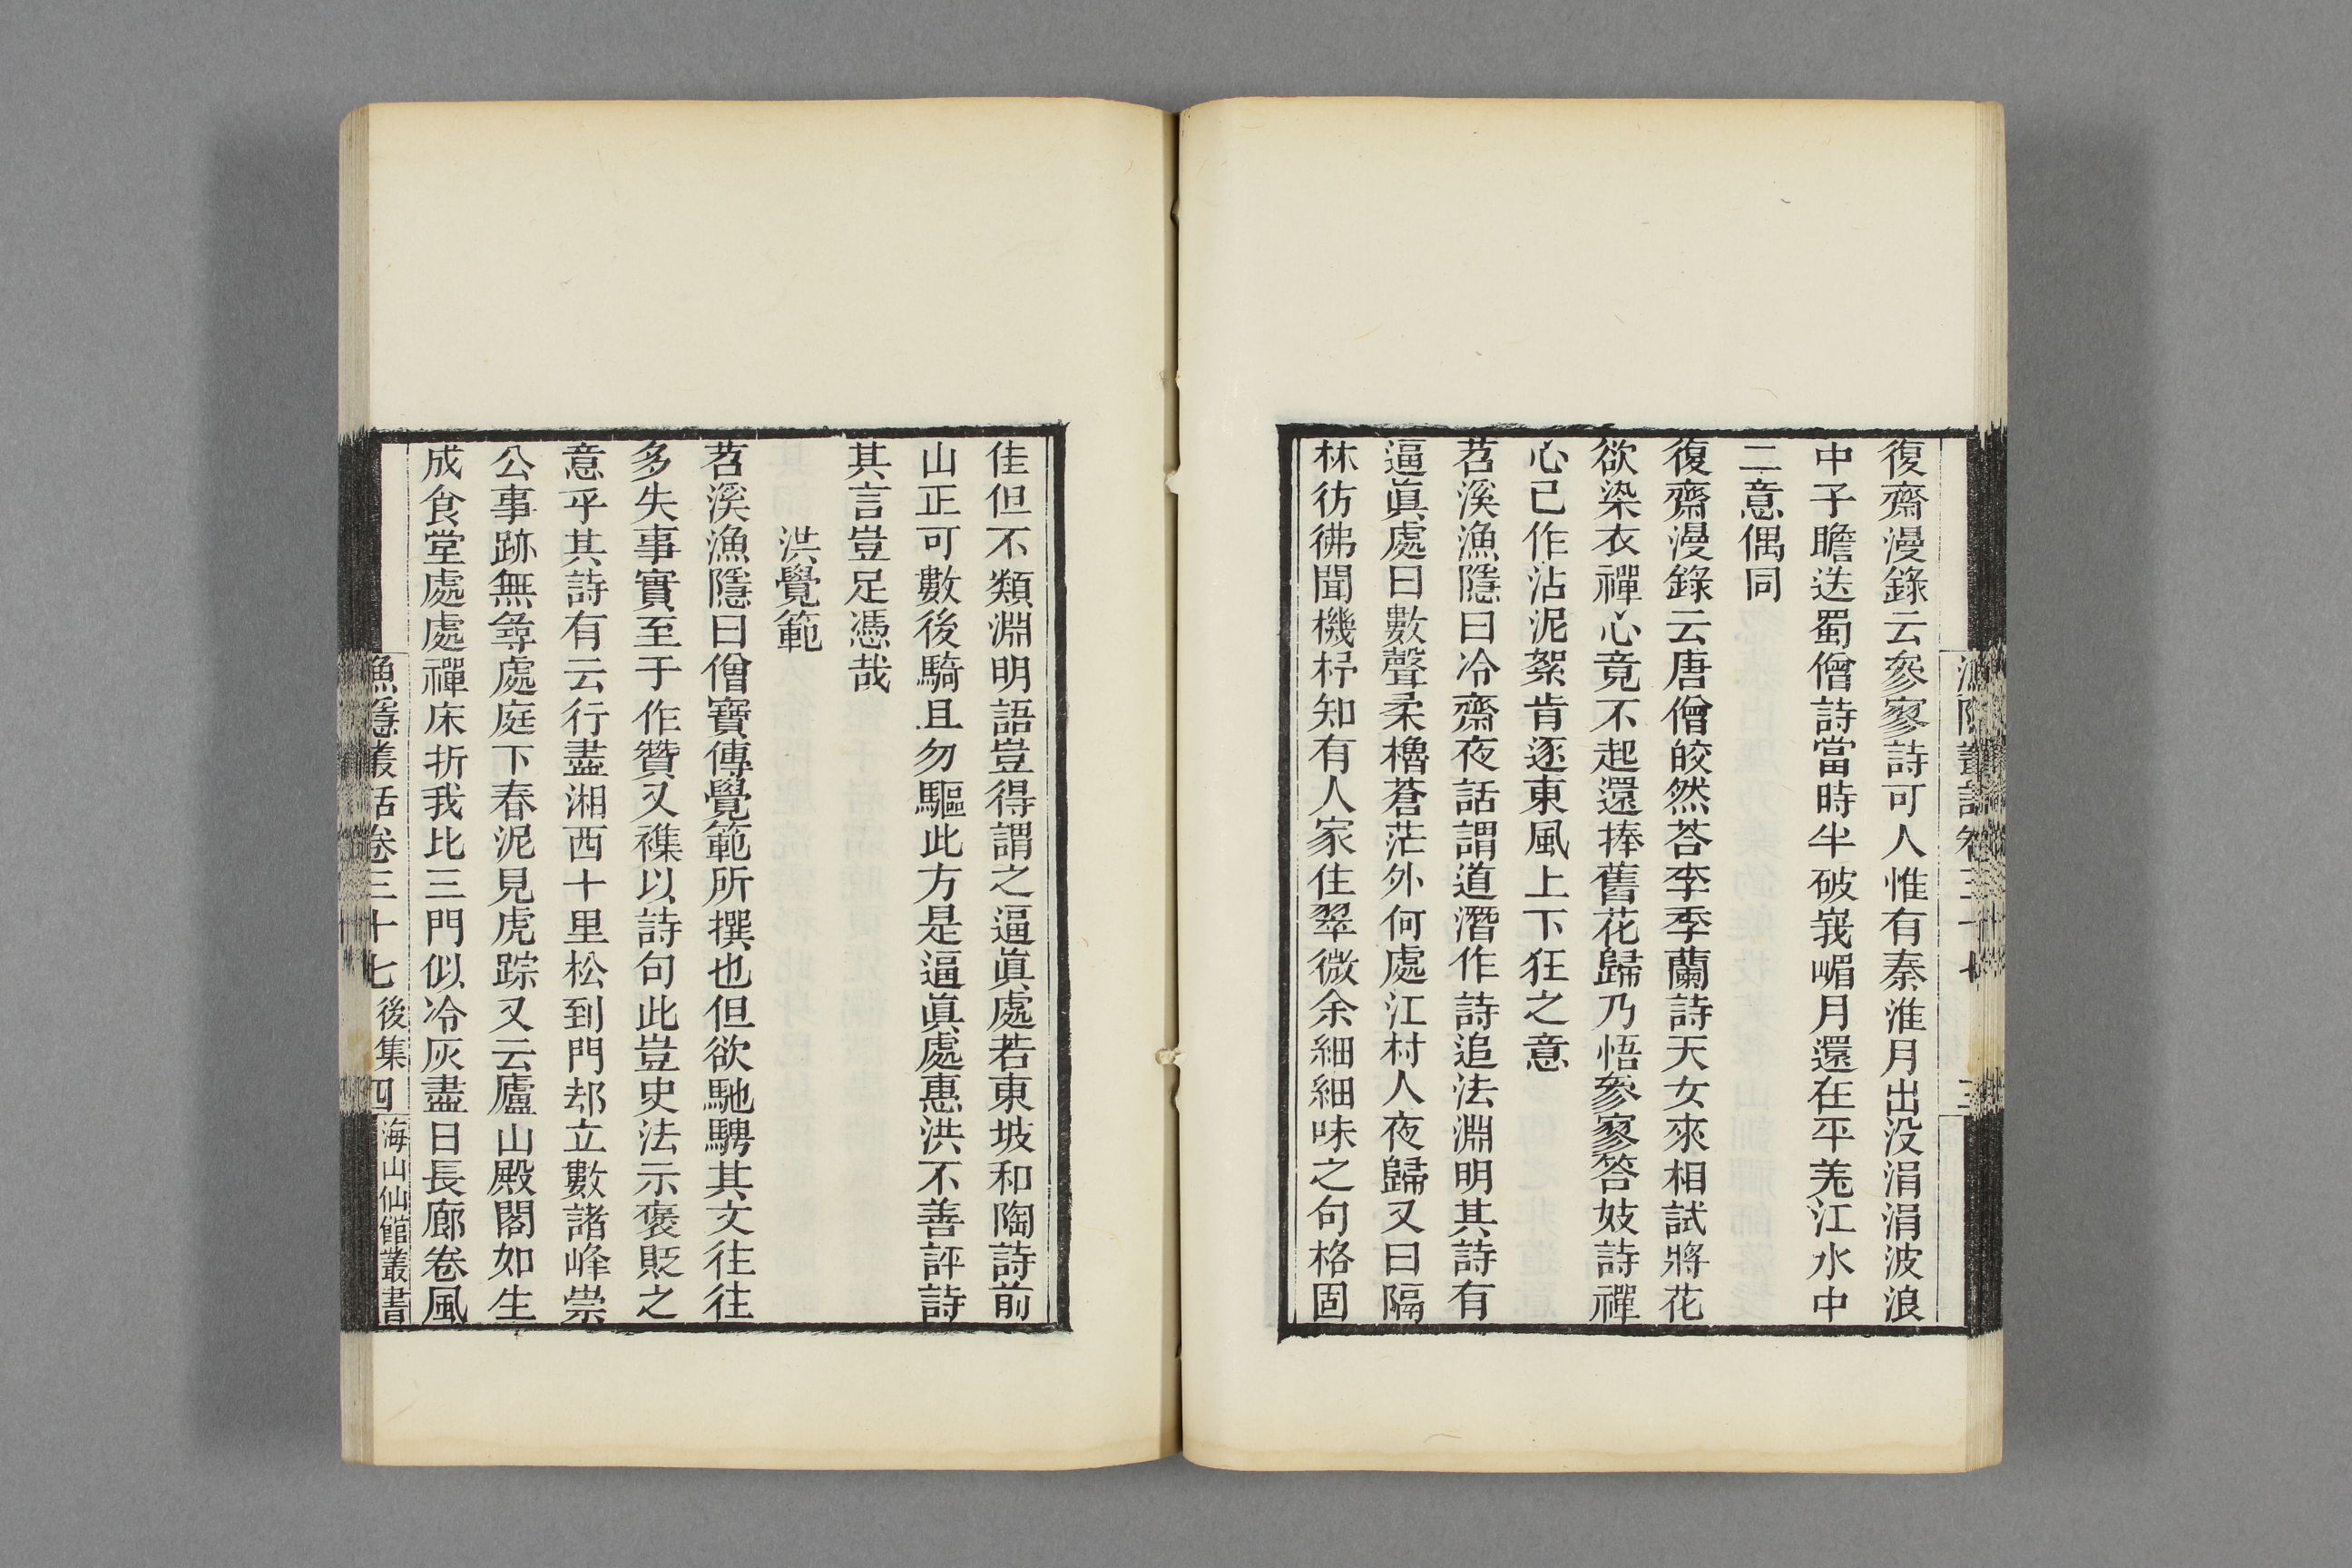 復齋漫錄云參寥詩可人惟有秦淮月出没涓涓波浪
中子瞻送蜀僧詩當時半破峩嵋月還在平羌江水中
二意偶同
復齋漫錄云唐僧皎然荅李季蘭詩天女來相試將花
欲染衣禪心竟不起還捧舊花歸乃悟參寥答妓詩禪
心已作沾泥絮肯逐東風上下狂之意
苕溪漁隱曰冷齋夜話謂道潛作詩追法淵明其詩有
逼眞處曰數聲柔櫓蒼茫外何處江村人夜歸又曰隔
林彷彿聞機杼知有人家住翠微余細細味之句格固
佳但不類淵明語豈得謂之逼眞處若東坡和陶詩前
山正可數後騎且勿驅此方是逼眞處惠洪不善評詩
其言豈足憑哉
洪覺範
苕溪漁隱曰僧寶傳覺範所撰也但欲馳騁其文往往
多失事實至于作贊又襍以詩句此豈史法示褒貶之
意乎其詩有云行盡湘西十里松到門却立數諸峰崇
公事跡無尋處庭下春泥見虎踪又云廬山殿閣如生
成食堂處處禪床折我比三門似冷灰盡日長廊卷風
漁隱叢話卷三十七 後集 四 海山仙館叢書